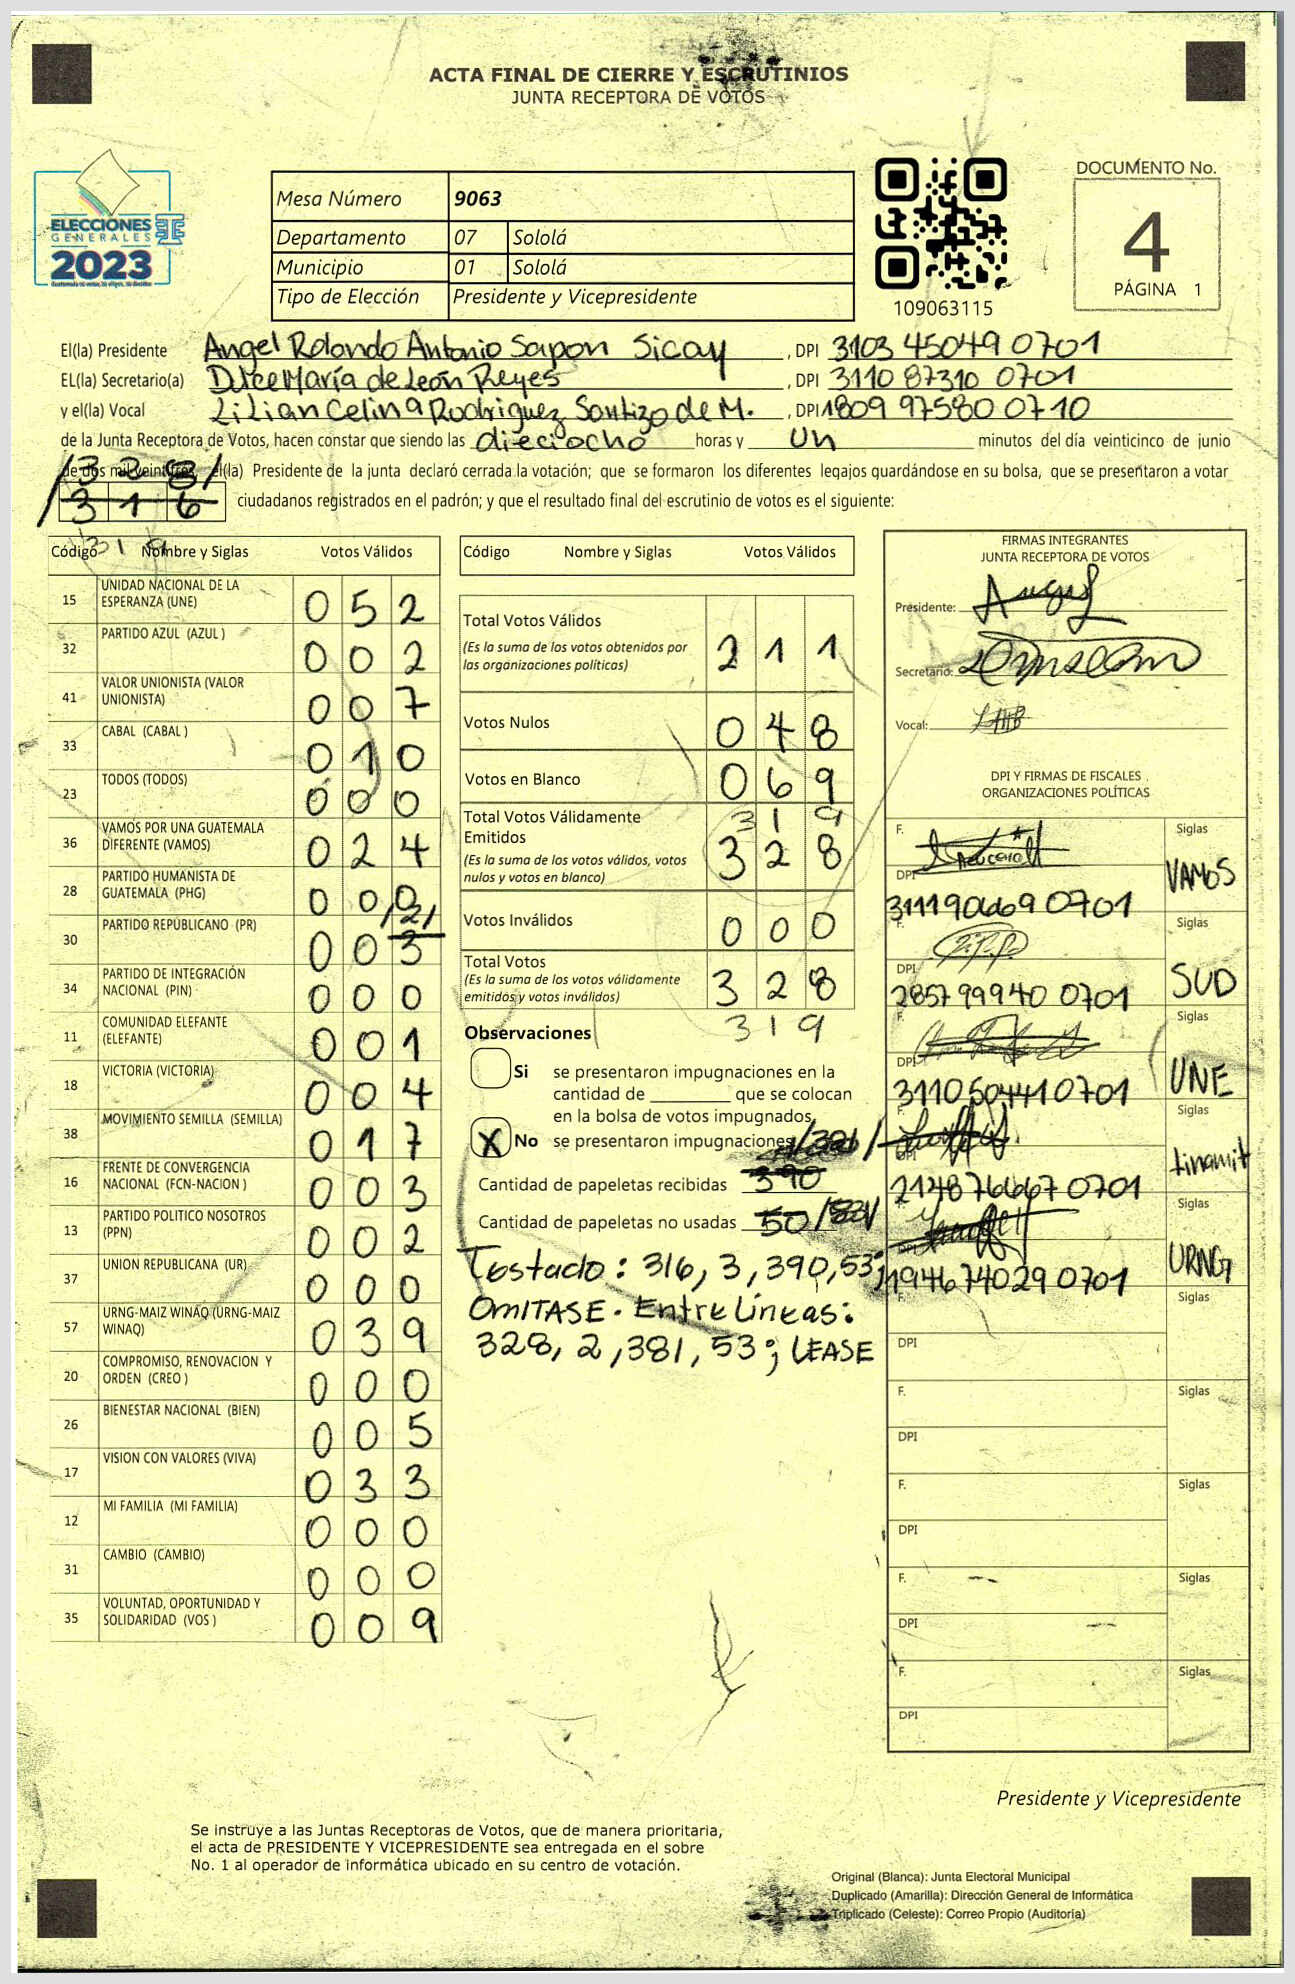 ACTA FINAL DE CIERRE Y ESCRUTINIOS
JUNTA RECEPTORA DE VOTOS
ELECCIONES
GENERALES
2023
Mesa Número 9063
Departamento 07 Sololá
Municipio 01 Sololá
Tipo de Elección Presidente y Vicepresidente
109063115
DOCUMENTO No.
4
PÁGINA 1
El(la) Presidente Angel Rolando Antonio Sapon Sicay, DPI 3103 45049 0701
EL(la) Secretario(a) Dulce María de León Reyes, DPI 3110 87310 0701
y el(la) Vocal Lilian Celina Rodriguez Santizo de M., DPI 1809 97580 0710
de la Junta Receptora de Votos, hacen constar que siendo las dieciocho horas y un minutos del día veinticinco de junio
de dos mil veintitrés, el(la) Presidente de la junta declaró cerrada la votación; que se formaron los diferentes legajos guardándose en su bolsa, que se presentaron a votar
/328/
316 ciudadanos registrados en el padrón; y que el resultado final del escrutinio de votos es el siguiente:
319
Código Nombre y Siglas Votos Válidos
15 UNIDAD NACIONAL DE LA ESPERANZA (UNE) 0 5 2
32 PARTIDO AZUL (AZUL ) 0 0 2
41 VALOR UNIONISTA (VALOR UNIONISTA) 0 0 7
33 CABAL (CABAL ) 0 1 0
23 TODOS (TODOS) 0 0 0
36 VAMOS POR UNA GUATEMALA DIFERENTE (VAMOS) 0 2 4
28 PARTIDO HUMANISTA DE GUATEMALA (PHG) 0 0 0
30 PARTIDO REPUBLICANO (PR) 0 0 3 /2/
34 PARTIDO DE INTEGRACIÓN NACIONAL (PIN) 0 0 0
11 COMUNIDAD ELEFANTE (ELEFANTE) 0 0 1
18 VICTORIA (VICTORIA) 0 0 4
38 MOVIMIENTO SEMILLA (SEMILLA) 0 1 7
16 FRENTE DE CONVERGENCIA NACIONAL (FCN-NACION ) 0 0 3
13 PARTIDO POLITICO NOSOTROS (PPN) 0 0 2
37 UNION REPUBLICANA (UR) 0 0 0
57 URNG-MAIZ WINAQ (URNG-MAIZ WINAQ) 0 3 9
20 COMPROMISO, RENOVACION Y ORDEN (CREO ) 0 0 0
26 BIENESTAR NACIONAL (BIEN) 0 0 5
17 VISION CON VALORES (VIVA) 0 3 3
12 MI FAMILIA (MI FAMILIA) 0 0 0
31 CAMBIO (CAMBIO) 0 0 0
35 VOLUNTAD, OPORTUNIDAD Y SOLIDARIDAD (VOS ) 0 0 9
Código Nombre y Siglas Votos Válidos
Total Votos Válidos 2 1 1
(Es la suma de los votos obtenidos por
las organizaciones políticas)
Votos Nulos 0 4 8
Votos en Blanco 0 6 9
Total Votos Válidamente 3 1 9
Emitidos 3 2 8
(Es la suma de los votos válidos, votos
nulos y votos en blanco)
Votos Inválidos 0 0 0
Total Votos 3 2 8
(Es la suma de los votos válidamente
emitidos y votos inválidos)
Observaciones 3 1 9
Si se presentaron impugnaciones en la
cantidad de que se colocan
en la bolsa de votos impugnados.
X No se presentaron impugnaciones
/381/
Cantidad de papeletas recibidas 390
Cantidad de papeletas no usadas 50 /53/
Testado: 316, 3, 390, 53;
OMITASE. Entre líneas:
328, 2, 381, 53; LEASE
FIRMAS INTEGRANTES
JUNTA RECEPTORA DE VOTOS
Presidente:
Secretario:
Vocal:
DPI Y FIRMAS DE FISCALES
ORGANIZACIONES POLÍTICAS
F. Siglas
DPI 311190669 0701 VAMOS
F. Siglas
DPI 285799940 0701 SUD
F. Siglas
DPI 311050441 0701 UNE
F. Siglas
DPI 214876667 0701 tinamit
F. Siglas
DPI 194674029 0701 URNG
F. Siglas
DPI
F. Siglas
DPI
F. Siglas
DPI
F. Siglas
DPI
F. Siglas
DPI
Presidente y Vicepresidente
Se instruye a las Juntas Receptoras de Votos, que de manera prioritaria,
el acta de PRESIDENTE Y VICEPRESIDENTE sea entregada en el sobre
No. 1 al operador de informática ubicado en su centro de votación.
Original (Blanca): Junta Electoral Municipal
Duplicado (Amarilla): Dirección General de Informática
Triplicado (Celeste): Correo Propio (Auditoria)